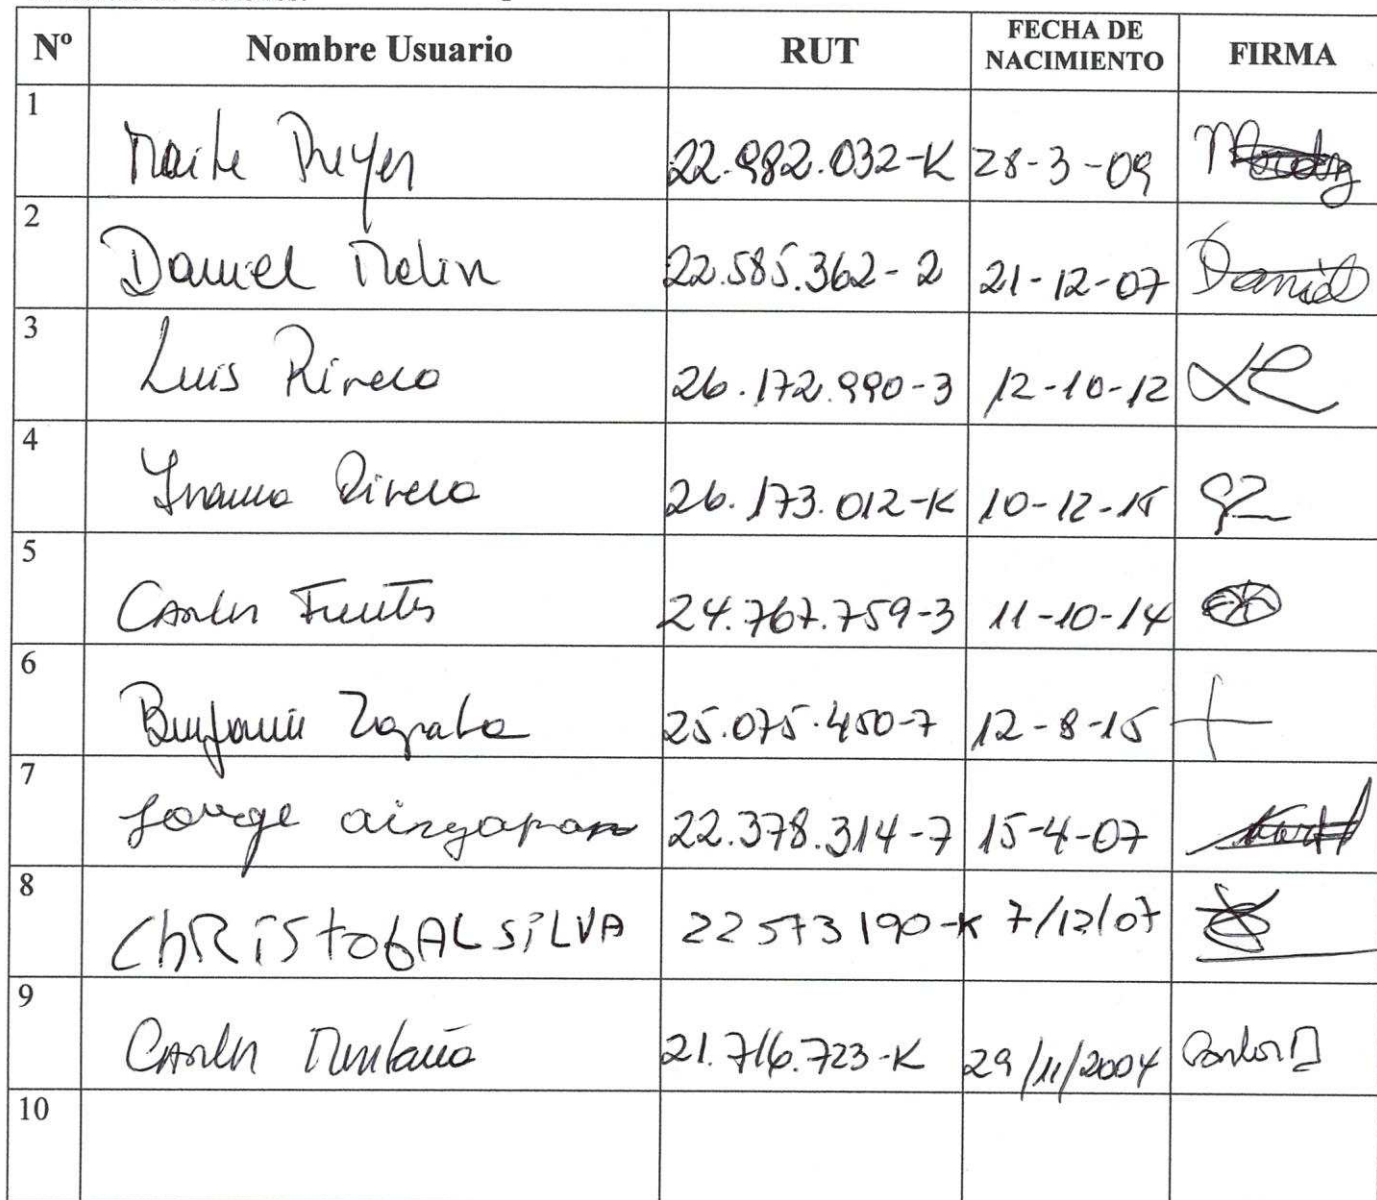 Nº Nombre Usuario RUT FECHA DE NACIMIENTO FIRMA
1 Maite Reyes 22.982.032-K 28-3-09
2 Daniel Melin 22.585.362-2 21-12-07 Daniel
3 Luis Rivera 26.172.990-3 12-10-12
4 Rivera 26.173.012-K 10-12-15
5 Carlos Fuentes 24.767.759-3 11-10-14
6 Benjamin Zapata 25.075.450-7 12-8-15
7 Jorge aingapan 22.378.314-7 15-4-07
8 ChRiStobAL SiLVA 22 573 190-K 7/12/07
9 Carlos Montaña 21.716.723-K 29/11/2004 Carlos M
10